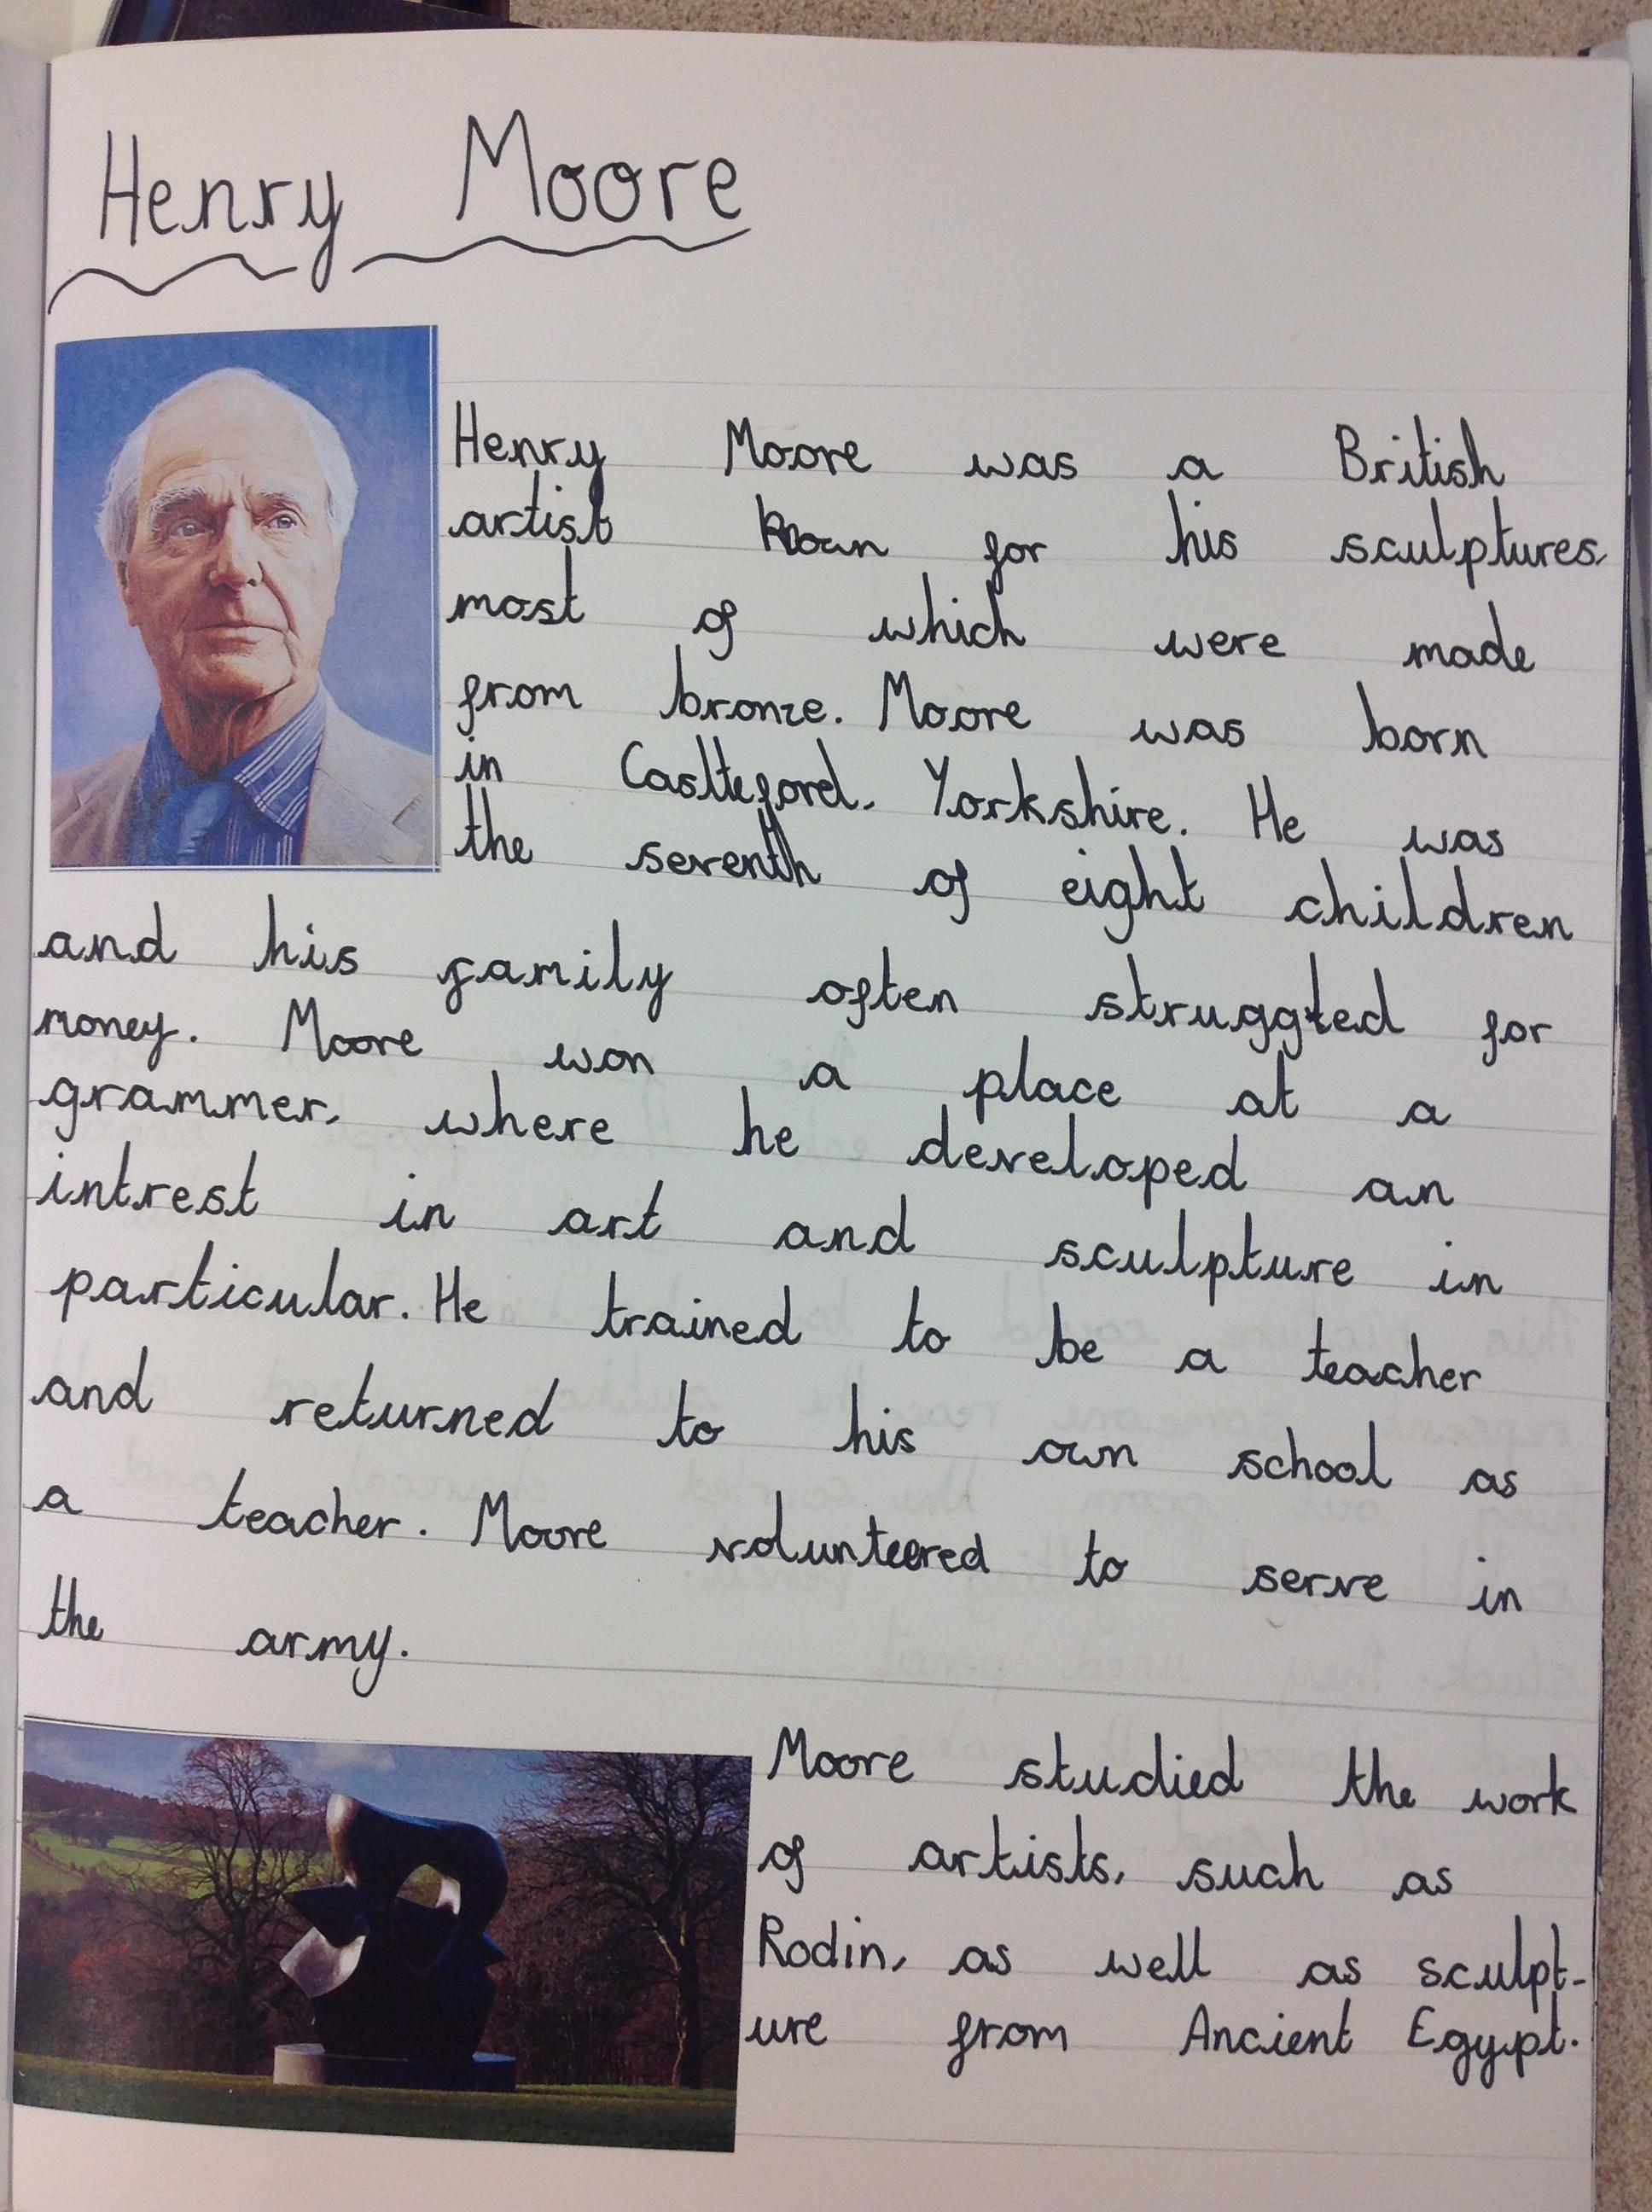 Henry Moore
Henry Moore was a British
artist known for his sculptures,
most of which were made
from bronze. Moore was born
in Castleford, Yorkshire. He was
the seventh of eight children
and his family often struggled for
money. Moore won a place at a
grammer, where he developed an
intrest in art and sculpture in
particular. He trained to be a teacher
and returned to his own school as
a teacher. Moore volunteered to serve in
the army.
Moore studied the work
of artists, such as
Rodin, as well as sculpt-
ure from Ancient Egypt.